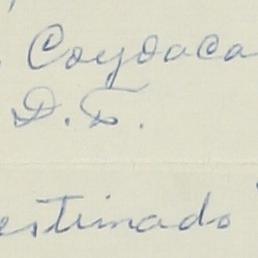 Coyoaca
D.F.
estimado